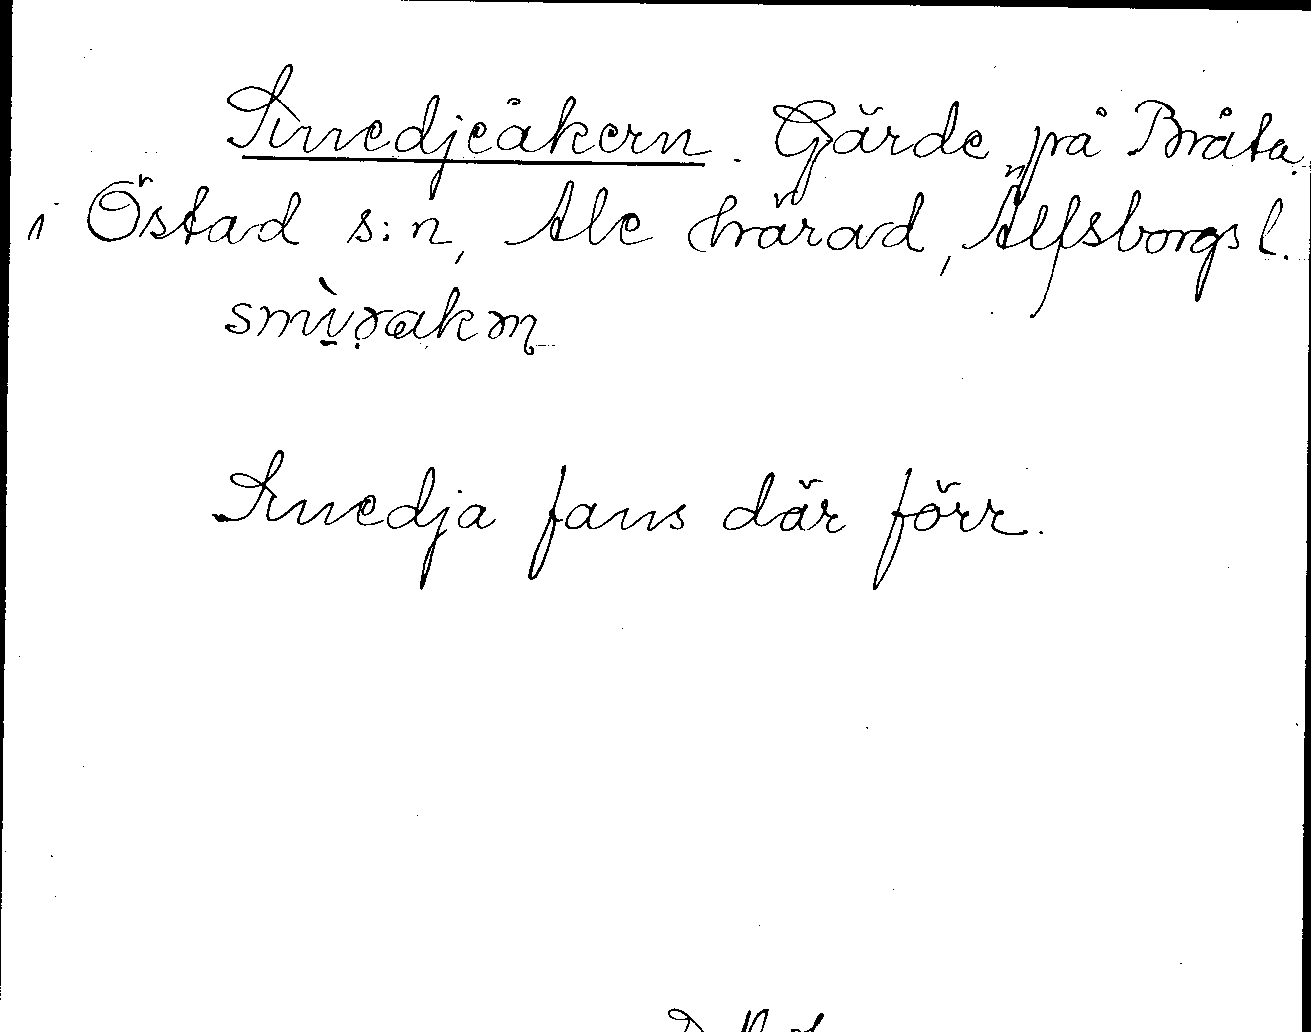 Smedjeåkern. Gärde på Bråta
i Östad s:n, Ale härad, Älfsborgs l.
Smedja fans där förr.